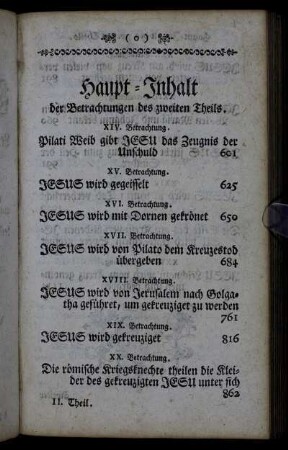 ( o )
Haupt-Inhalt
der Betrachtungen des zweiten Theils.
XIV. Betrachtung.
Pilati Weib gibt JESU das Zeugnis der
Unschuld 601
XV. Betrachtung.
JESUS wird gegeisselt 625
XVI. Betrachtung.
JESUS wird mit Dornen gekrönet 650
XVII. Betrachtung.
JESUS wird von Pilato dem Kreuzestod
übergeben 684
XVIII. Betrachtung.
JESUS wird von Jerusalem nach Golga-
tha geführet, um gekreuziget zu werden
761
XIX. Betrachtung.
JESUS wird gekreuziget 816
XX. Betrachtung.
Die römische Kriegsknechte theilen die Klei-
der des gekreuzigten JESU unter sich
862
II. Theil.